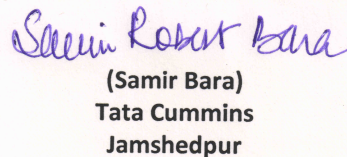 Samir Robert Bara
(Samir Bara)
Tata Cummins
Jamshedpur